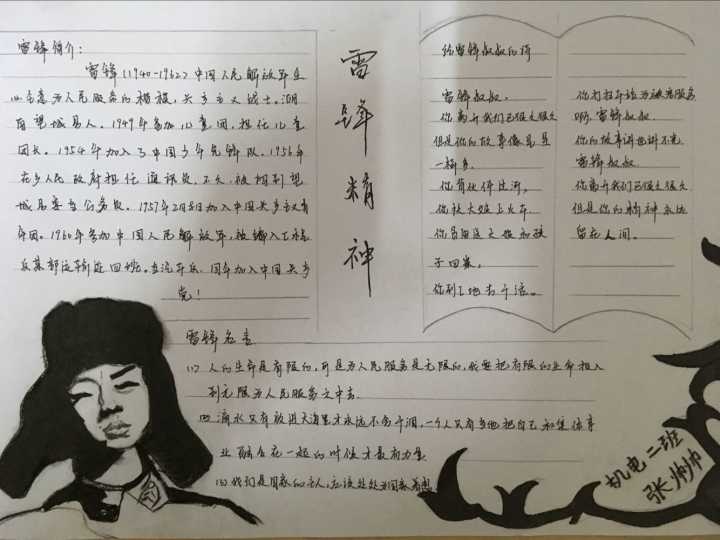 雷锋简介：
雷锋（1940-1962）中国人民解放军全
心全意为人民服务的楷模，共产主义战士。湖
南望城县人。1949年参加儿童团，担任儿童
团长。1954年加入了中国少年先锋队。1956年
在乡人民政府担任通讯员，不久，被调到望
城县委当公务员。1957年2月8日加入中国共产主义青
年团。1960年参加中国人民解放军，被编入工程
兵某部运输连四班。当汽车兵，同年加入中国共产
党！
雷锋精神
给雷锋叔叔的诗
雷锋叔叔，
你离开我们已很久很久
但是你的故事像星星
一样多
你背伙伴过河，
你扶大娘上火车
你
子回家，
你到工地去干活。
你
啊，雷锋叔叔
你的故事讲也讲不完
雷锋叔叔
你离开我们已很久很久
但是你的精神永远
留在人间。
雷锋名言
(1) 人的生命是有限的，可是为人民服务是无限的，我要把有限的生命投入
到无限为人民服务之中去。
滴水只有放进大海里才永远不会干涸，一个人只有当他把自己和集体事
业融合在一起的时候才最有力量
我们是国家的主人，应该处处为国家着想
机电二班
张帅帅